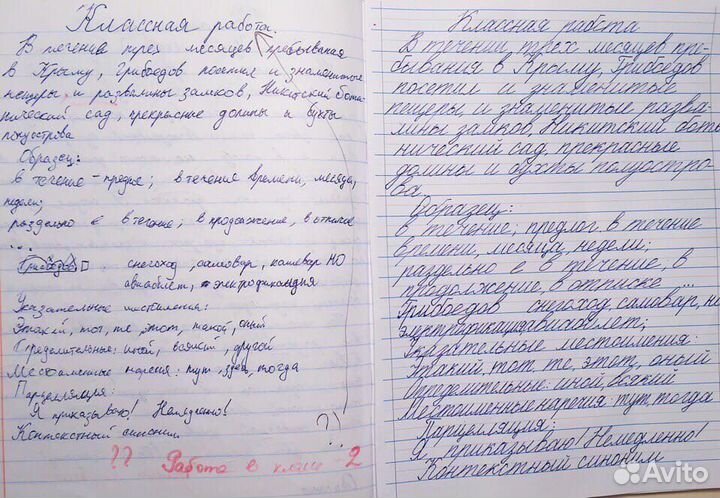 Классная работа.
В течение трех месяцев пребывания
в Крыму, Грибоедов посетил и знаменитые
пещеры и развалины замков, Никитский бота-
нический сад, прекрасные долины и бухты
полуострова
Образец:
в течение - предлог; в течение времени, месяца,
недели;
раздельно е в течение; в продолжение, в отличие
...
Грибоедов снегоход, самовар, кашевар НО
авиабилет, электрификация
Указательные местоимения:
Этакий, тот, те, этот, такой, оный
Определительные: иной, всякий, другой
Местоименные наречия: тут, здесь, тогда
Парцелляция:
Я приказываю! Немедленно!
Контекстный синоним
?)
?? Работа в классе - 2
Классная работа
В течении трех месяцев пре-
бывания в Крыму, Грибоедов
посетил и знаменитые
пещеры, и знаменитые разва-
лины замков, Никитский бота-
нический сад, прекрасные
долины и бухты полуостро-
ва
Образец:
в течение; предлог, в течение
времени, месяца, недели;
раздельно е в течение, в
продолжение, в отписке ...
Грибоедов снегоход, самовар, но
электрификация авиабилет;
Указательные местоимения:
Этакий, тот, те, этот, оный
Определительные: иной, всякий
Местоименные наречия: тут, тогда
Парцелляция:
Я приказываю! Немедленно!
Контекстный синоним
Avito